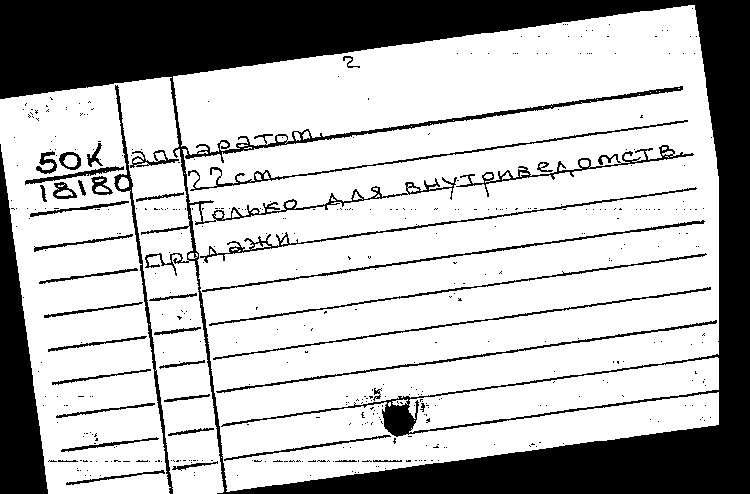 2
50К аппаратом.
18180 22 см.
Только для внутриведомств.
продажи.